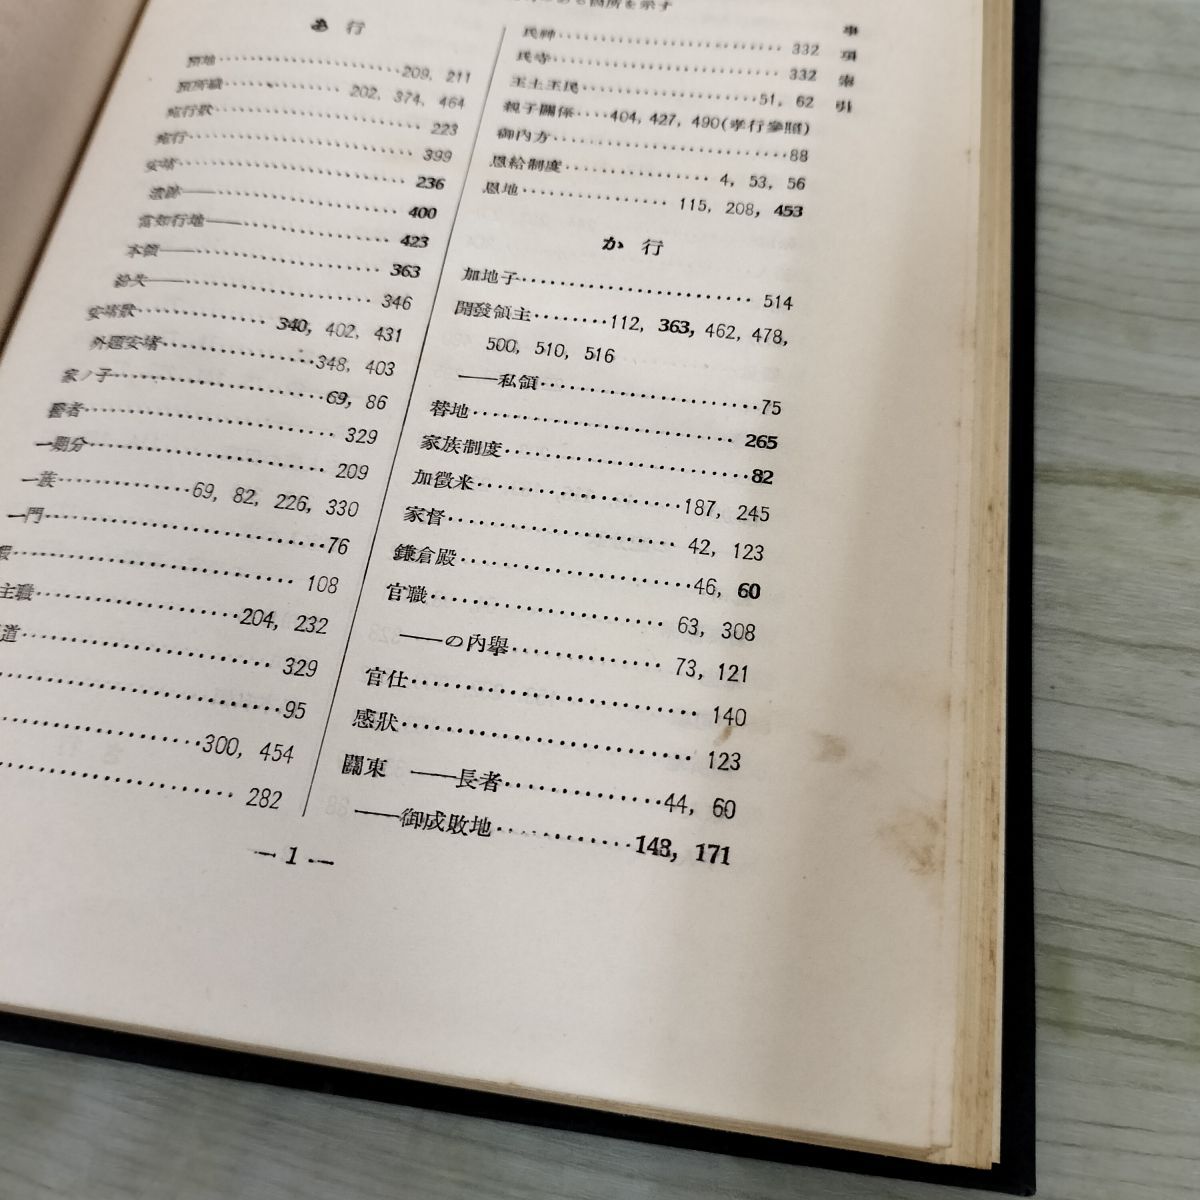 箇所を示す
事項索引
あ 行
預地 209, 211
預所職 202, 374, 464
宛行狀 223
宛行 399
安堵 236
遺跡—— 400
當知行地—— 423
本領—— 363
紛失—— 346
安堵狀 340, 402, 431
外題安堵 348, 403
家ノ子 69, 86
醫者 329
一期分 209
一族 69, 82, 226, 330
一門 76
108
主職 204, 232
道 329
95
300, 454
282
氏神 332
氏寺 332
王土王民 51, 62
親子關係 404, 427, 490(孝行參照)
御內方 88
恩給制度 4, 53, 56
恩地 115, 208, 453
か 行
加地子 514
開發領主 112, 363, 462, 478,
500, 510, 516
——私領 75
替地 265
家族制度 82
加徵米 187, 245
家督 42, 123
鎌倉殿 46, 60
官職 63, 308
——の內擧 73, 121
官仕 140
感狀 123
關東 ——長者 44, 60
——御成敗地 148, 171
— 1 —